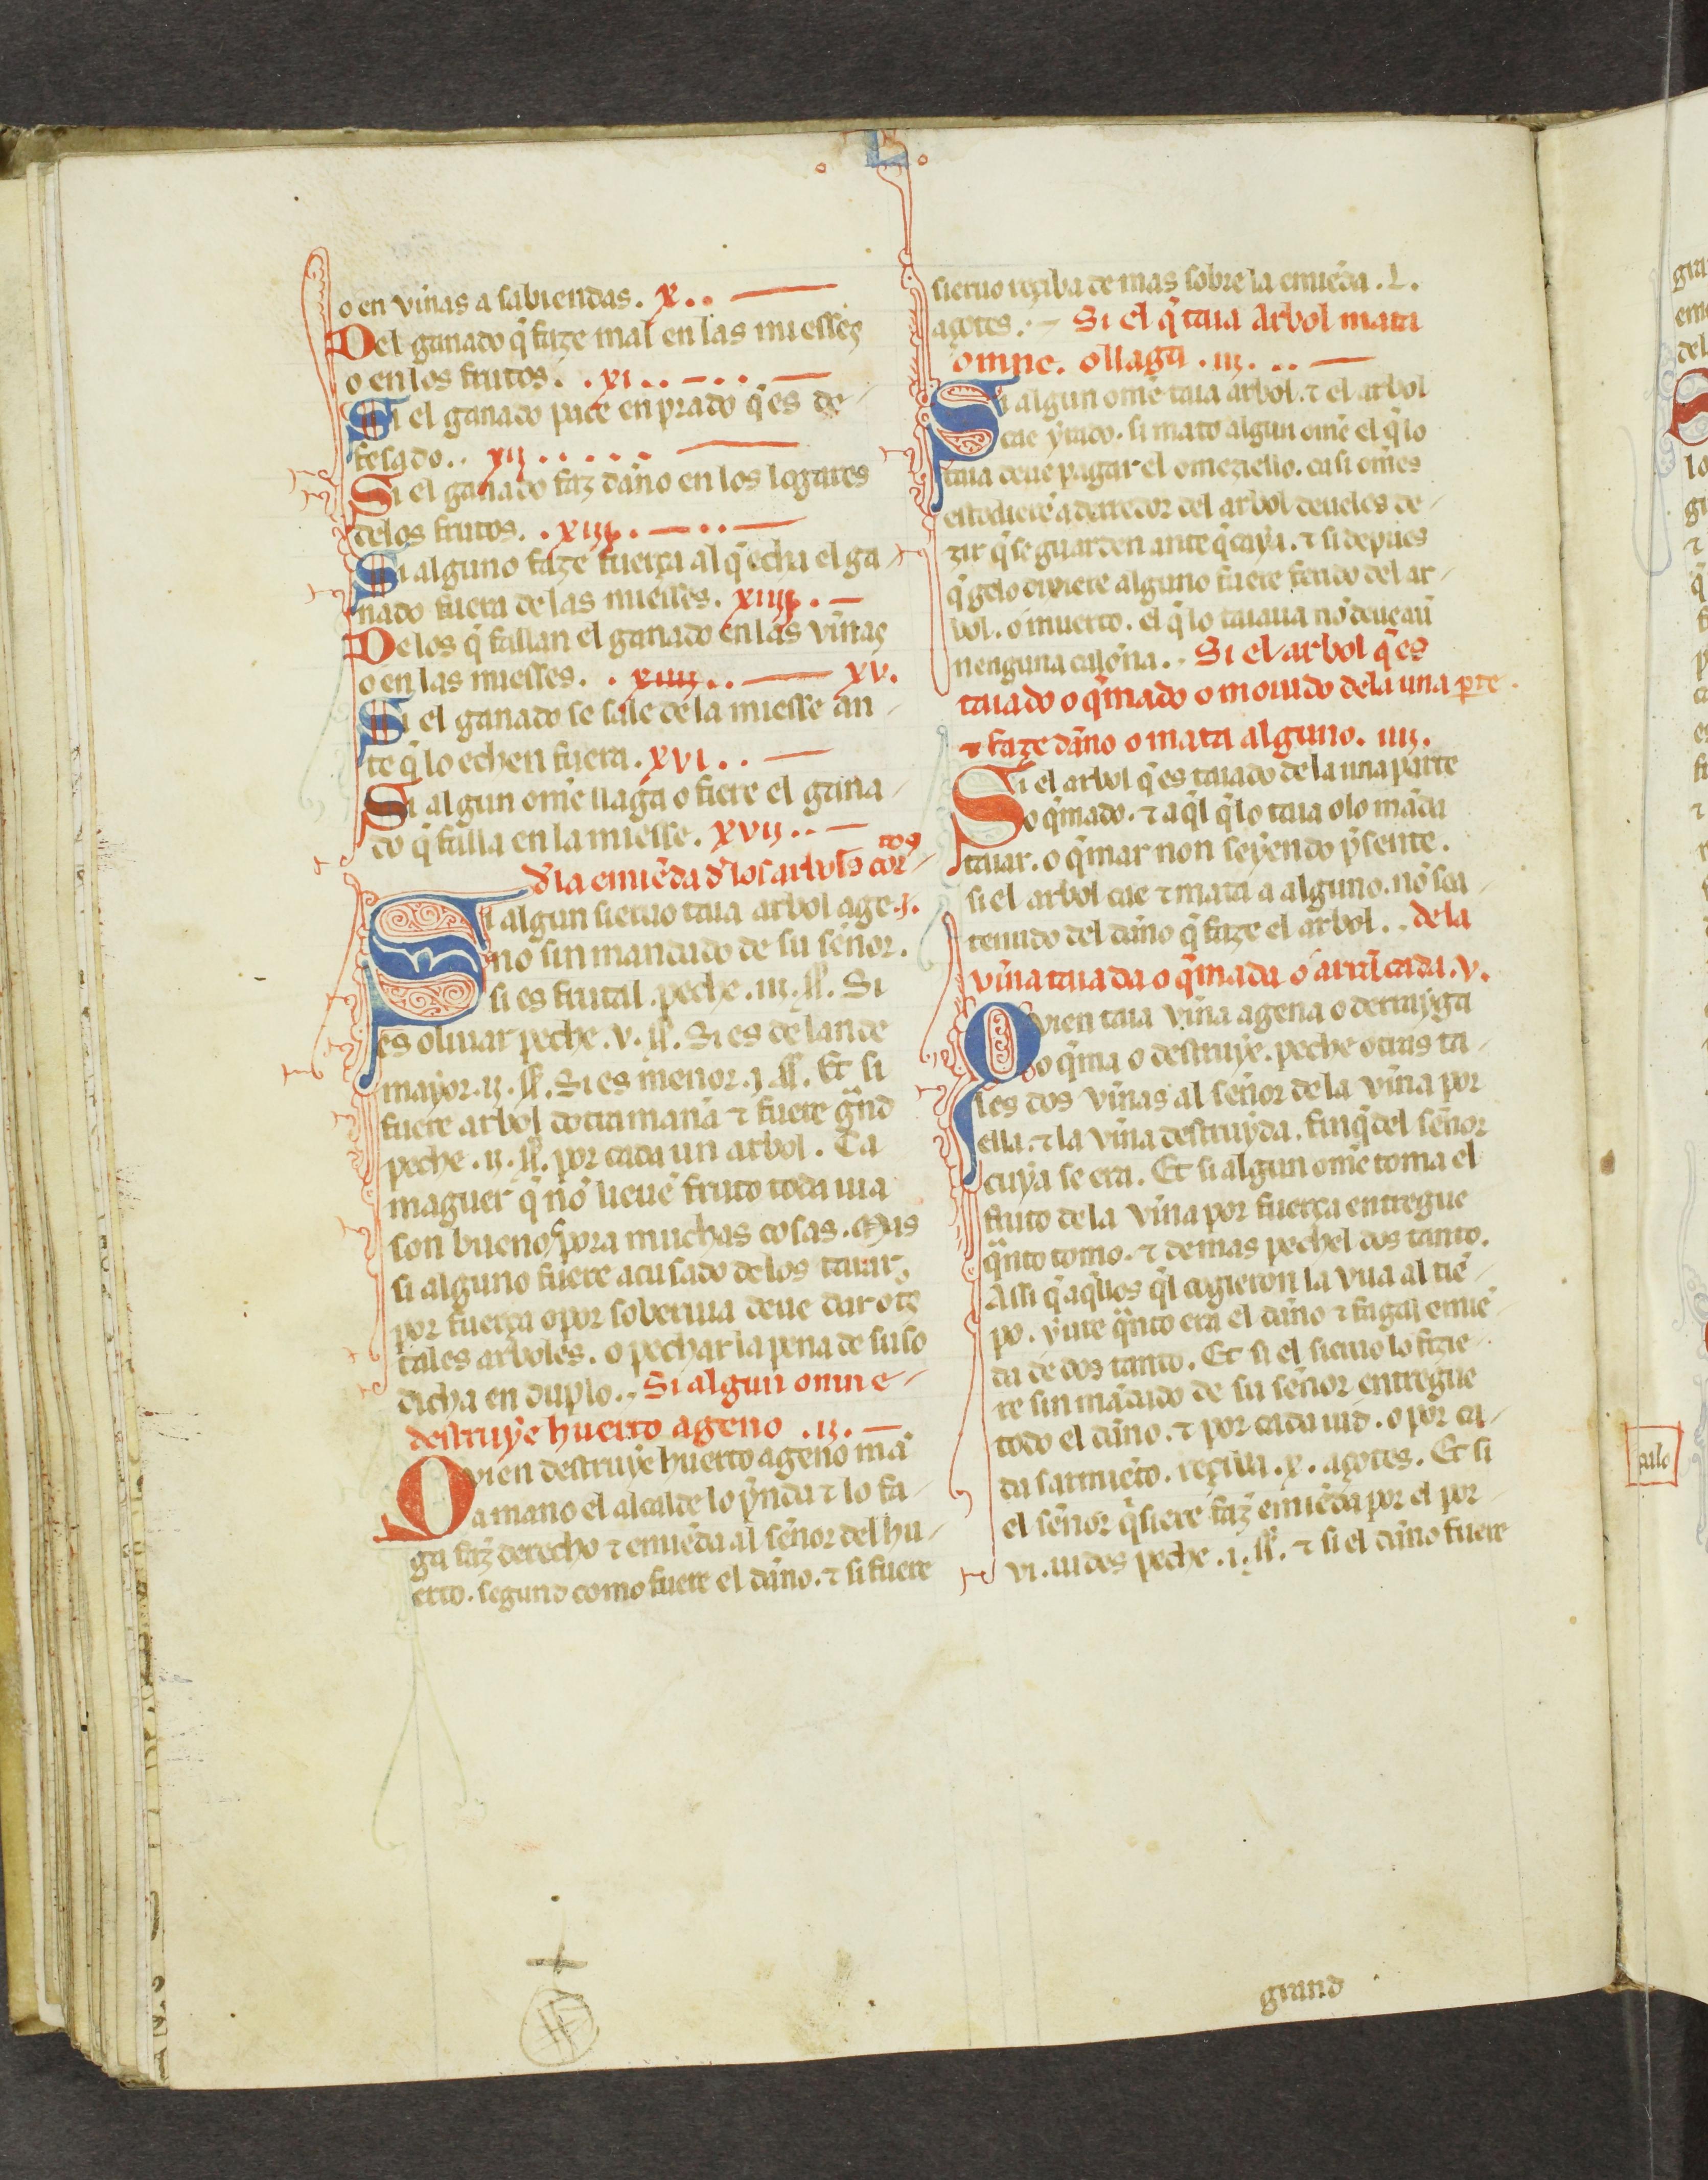 L
o en viñas a sabiendas. x..
Del ganado q̃ faze mal en las miesses
o en los frutos. .xi..
Si el ganado pace en prado q̃ es de-
fesado.. xij.....
Si el ganado faz daño en los logares
delos frutos. .xiij.
Si alguno faze fuerça al q̃ echa el ga-
nado fuera de las miesses. xiiij.
De los q̃ fallan el ganado en las viñas
o en las miesses. . xiiij.. xv.
Si el ganado se sale de la miesse an-
te q̃ lo echen fuera. xvi..
Si algun om̃e llaga o fiere el gana-
do q̃ falla en la miesse. xvij..
tos
d̃la emiẽda d̃ los arboles cor-
Si algun sieruo taia arbol age- .j.
no sin mandado de su señor.
si es frutal. peche .iij. ss. Si
es oliuar peche .v. ss. Si es de lande
mayor .ij. ss. Si es menor .j. ss. Et si
fuere arbol dotra manã τ fuere grñd
peche .ij. ss. por cada un arbol. Ca
maguer q̃ nõ lieue fruto toda uia
son buenos pora muchas cosas. Mas
si alguno fuere acusado delos taiar,
por fuerça o por soberuia deue dar otẽ
tales arboles. o pechar la pena de suso
dicha en duplo.. Si algun omne-
destruye huerto ageno .ij.
Qvien destruye huerto ageno mã
a mano el alcalde lo p̃nda τ lo fa-
ga faz̃ derecho τ emiẽda al señor del hu-
erto. segund como fuere el daño. τ si fuere
sieruo reçiba de mas sobre la emiẽda .L.
açotes. Si el q̃ taia Arbol mata
omne. o llaga .iij. ..
Si algun om̃e taia arbol. τ el arbol
cae yrado. si mato algun om̃e el q̃ lo
taia deue pagar el omeziello. ca si om̃es
estodiere aderredor del arbol deueles de-
zir q̃ se guarden ante q̃ caya. τ si depues
q̃ gelo dixiere alguno fuere ferido del ar-
bol. o muerto. el q̃ lo taiaua nõ deue aũ
nenguna caloña.. Si el arbol q̃ es
taiado o q̃mado o mouido dela una p̃te.
τ faze daño o mata alguno. iiij.
Si el arbol q̃ es taiado de la una parte
o q̃mado. τ aq̃l q̃ lo taia o lo mãda
taiar. o q̃mar non seyendo p̃sente.
si el arbol cae τ mata a alguno. nõ sea
tenudo del daño q̃ faze el arbol.. dela
viña taiada o q̃mada o arrãcada .v.
Qvien taia viña agena o derrayga
o q̃ma o destruye. peche otras ta-
les dos viñas al señor de la viña por
ella. τ la viña destruyda. finq̃ del señor
cuya se era. Et si algun om̃e toma el
fruto de la viña por fuerça entregue
q̃nto tomo. τ demas pechel dos tanto.
Assi q̃ aq̃llos q̃l cogieron la vua al tiẽ-
po. yure q̃nto era el daño τ fagal emiẽ-
da de dos tanto. Et si el sieruo lo fizie-
re sin mãdado de su señor entregue
todo el daño. τ por cada uid. o por ca-
da sarmiẽto. reçiba .x. açotes. Et si
el señor q̃siere faz̃ emiẽda por el por
vi. uides peche .i. ss. τ si el daño fuere
grand
palo